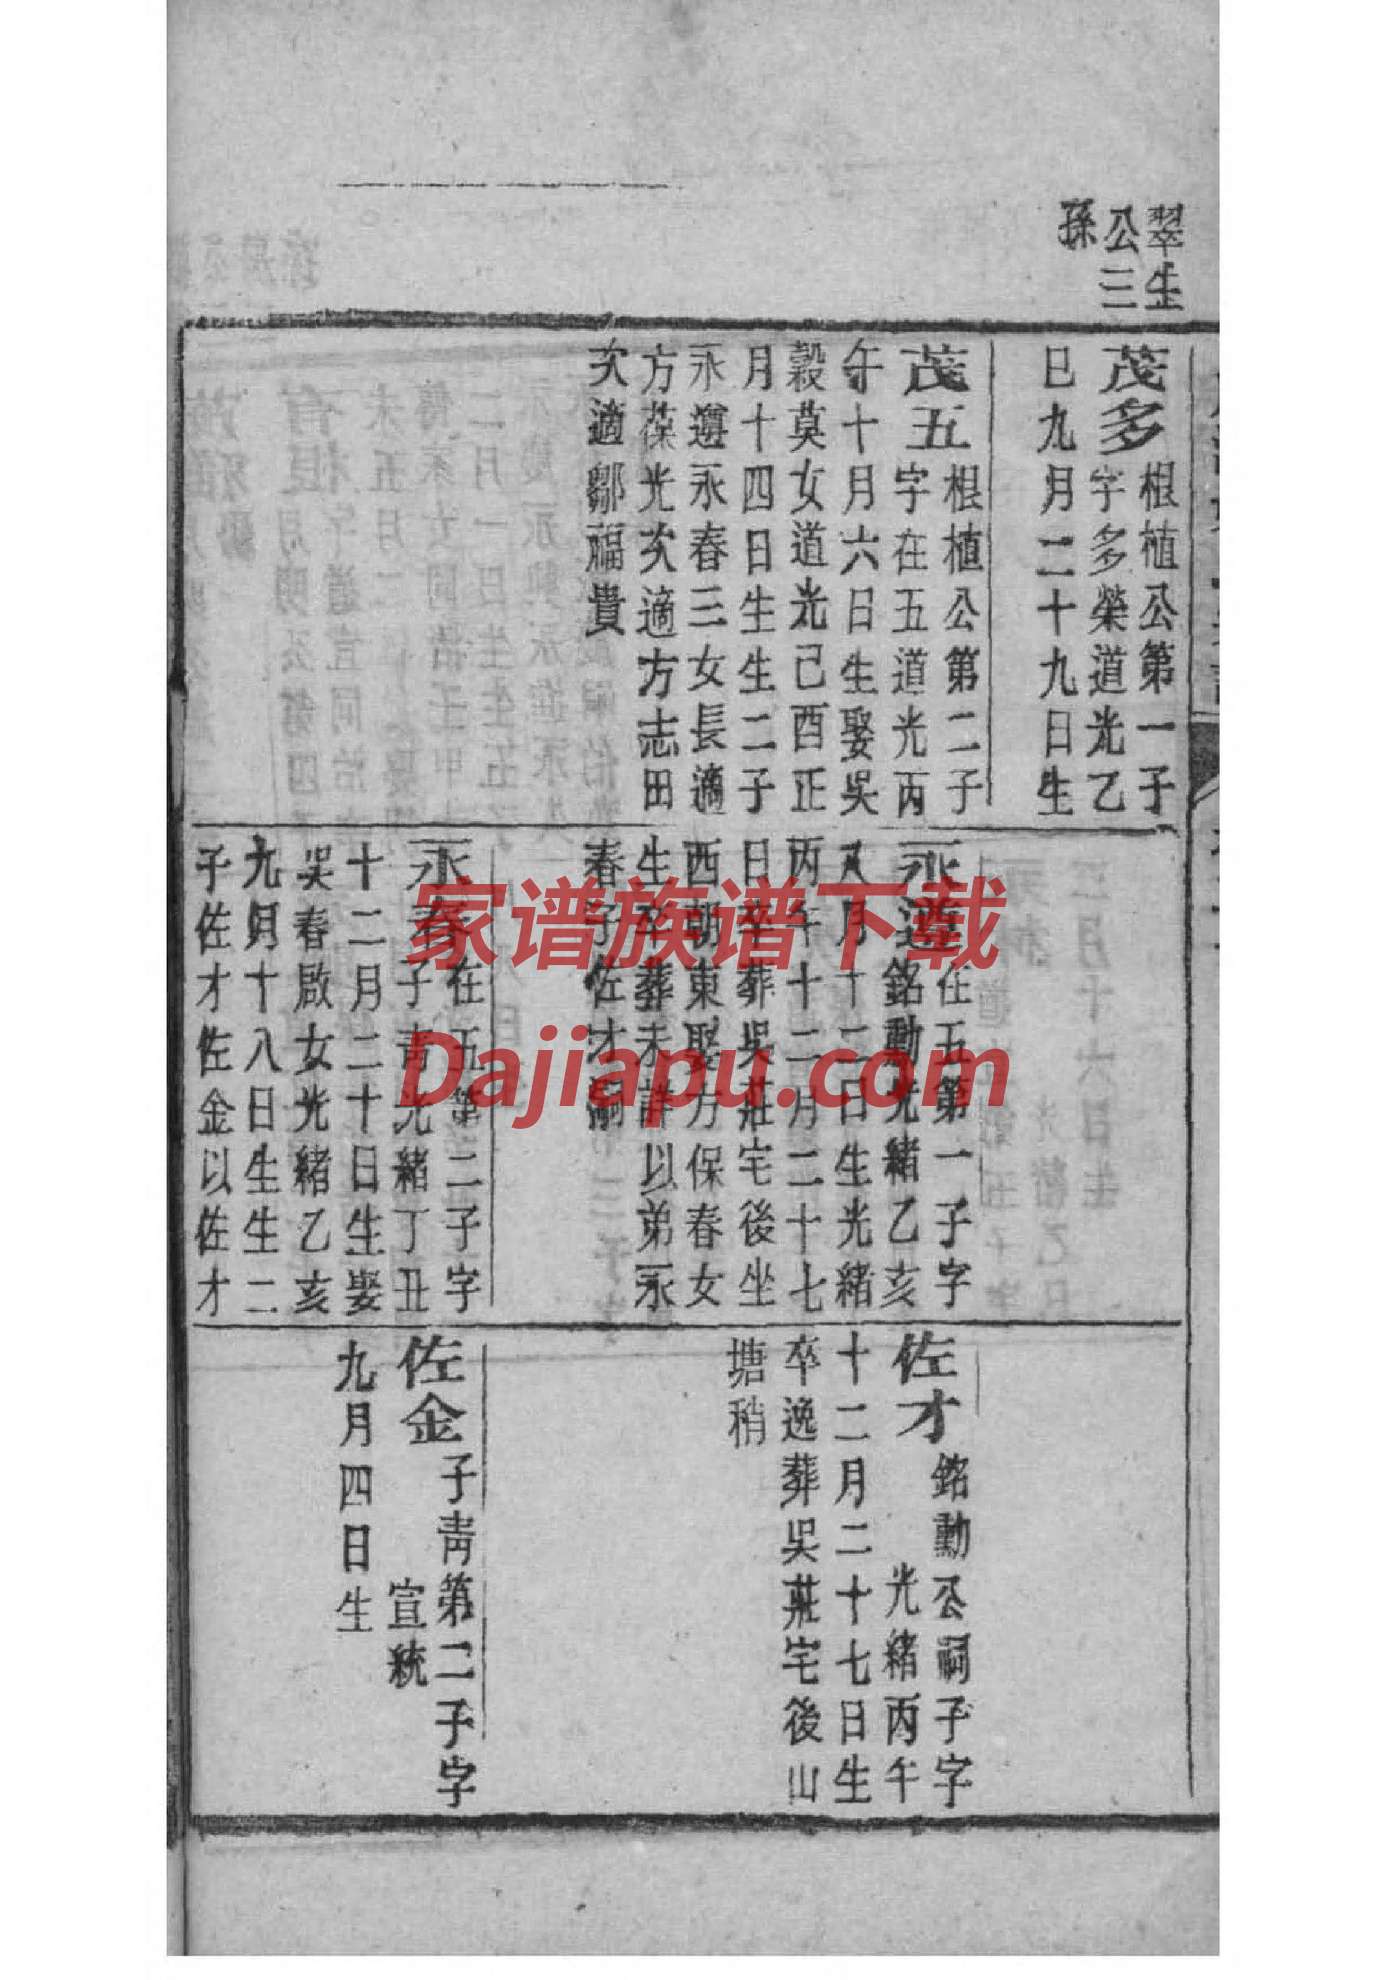 翠生
公三
孫
茂多
根植公第一子
字多榮道光乙
巳九月二十九日生
茂五
根植公第二子
字在五道光丙
午十月六日生娶吳
穀莫女道光己酉正
月十四日生生二子
永遵永春三女長適
方葆光次適方志田
次適鄒福貴
永遵
在五第一子字
銘勳光緒乙亥
八月十二日生光緒
丙午十二月二十七
日卒葬吳莊宅後坐
西朝東娶方保春女
生卒葬未詳以弟永
春子佐才嗣
永春
在五第二子字
子青光緒丁丑
十二月二十日生娶
吳春啟女光緒乙亥
九月十八日生生二
子佐才佐金以佐才
佐才
銘勳公祠子字
光緒丙午
十二月二十七日生
卒逸葬吳莊宅後山
塘稍
佐金
子青第二子字
宣統
九月四日生
家谱族谱下载
Dajiapu.com